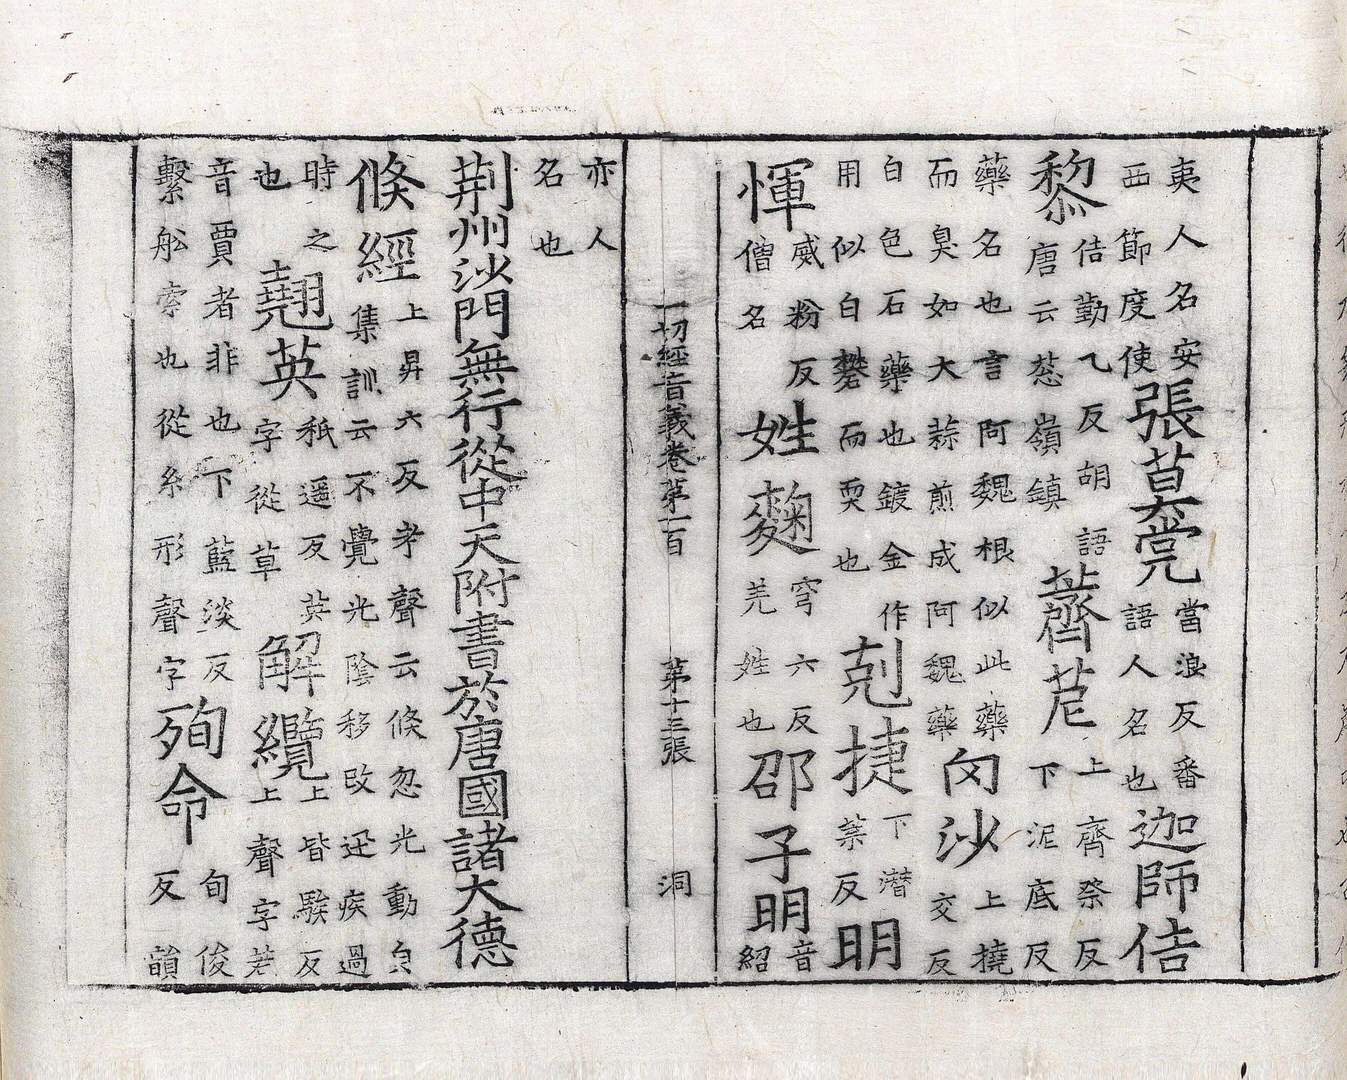 夷人名安
西節度使
張莫党
當浪反番
語人名也
迦師佶
黎
佶勤乙反胡語
唐云葱嶺鎮
薺苨
上齊祭反
下泥底反
藥名也言阿魏根似此藥
而臭如大蒜煎成阿魏藥
沙
上撓
交反
白色石藥也鍍金作
用似白礬而耎也
剋捷
下潛
葉反
明
惲
威粉反
僧名
姓麴
穹六反
羌姓也
邵子明
音
紹
一切經音義卷第一百 第十三張 洞
亦人
名也
荆州沙門無行從中天附書於唐國諸大德
倏經
上昇六反考聲云倏忽光動皃
集訓云不覺光陰移改迅疾過
時之
也
翹英
祇遥反英
字從草
解纜
上皆駭反
上聲字若
音賈者非也下藍淡反
繫舩索也從糸形聲字
殉命
旬俊
反韻